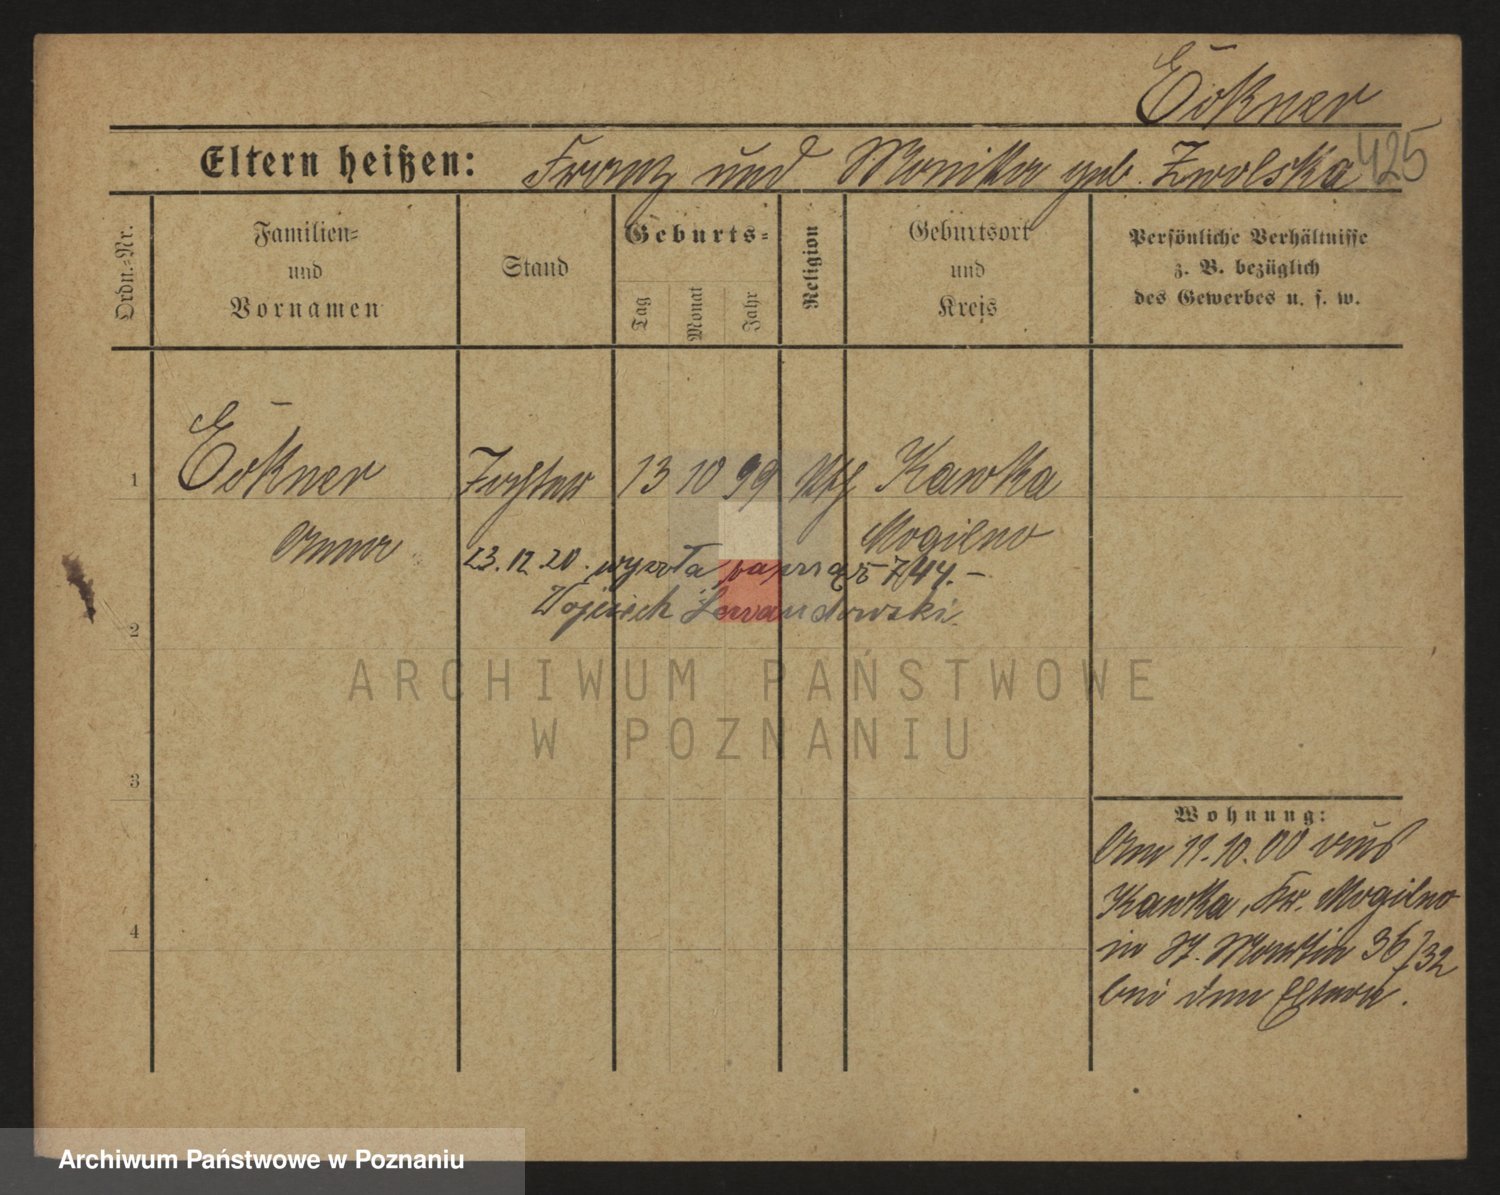 Eckner
Eltern heißen: Franz und Monika geb. Zwolska 425
Ordn.=Nr.
Familien=
und
Vornamen
Stand
Geburts=
Tag
Monat
Jahr
Religion
Geburtsort
und
Kreis
Persönliche Verhältnisse
z. B. bezüglich
des Gewerbes u. s. w.
1 Tochter 13 10 99 Kawka
Anna Mogilno
23.12.20. wyszła 744.-
Wojciech Lewandowski.
2
ARCHIWUM PAŃSTWOWE
W POZNANIU
3
Wohnung:
Am 11.10.00 aus
Kawka, Kr. Mogilno
4
in St. Martin 36/32
bei den Eltern.
Archiwum Państwowe w Poznaniu